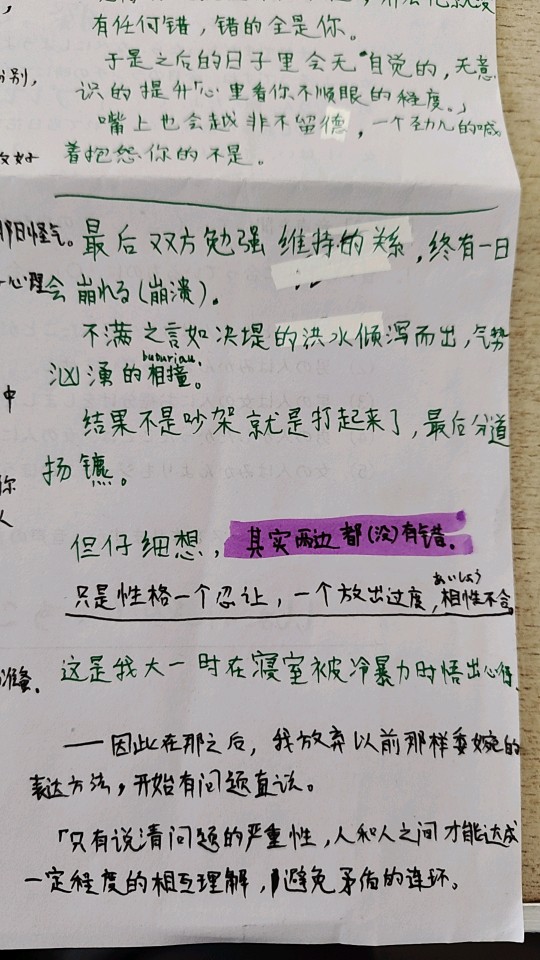 有任何错，错的全是你。
于是之后的日子里会无自觉的，无意
识的提升「心里看你不顺眼的程度。」
嘴上也会越非不留德，一个劲儿的喊
着抱怨你的不是。
阴阳怪气。
最后双方勉强维持的关系，终有一日
心理
会崩れる（崩溃）。
不满之言如决堤的洪水倾泻而出，气势
汹涌的相撞。
中
结果不是吵架就是打起来了，最后分道
扬镳。
你
人
但仔细想，其实两边都（没）有错。
あいしょう
只是性格一个忍让，一个放出过度，相性不合
准备.
这是我大一时在寝室被冷暴力时悟出心得.
——因此在那之后，我放弃以前那样委婉的
表达方法，开始有问题直说。
「只有说清问题的严重性，人和人之间才能达成
一定程度的相互理解，避免矛盾的连环。